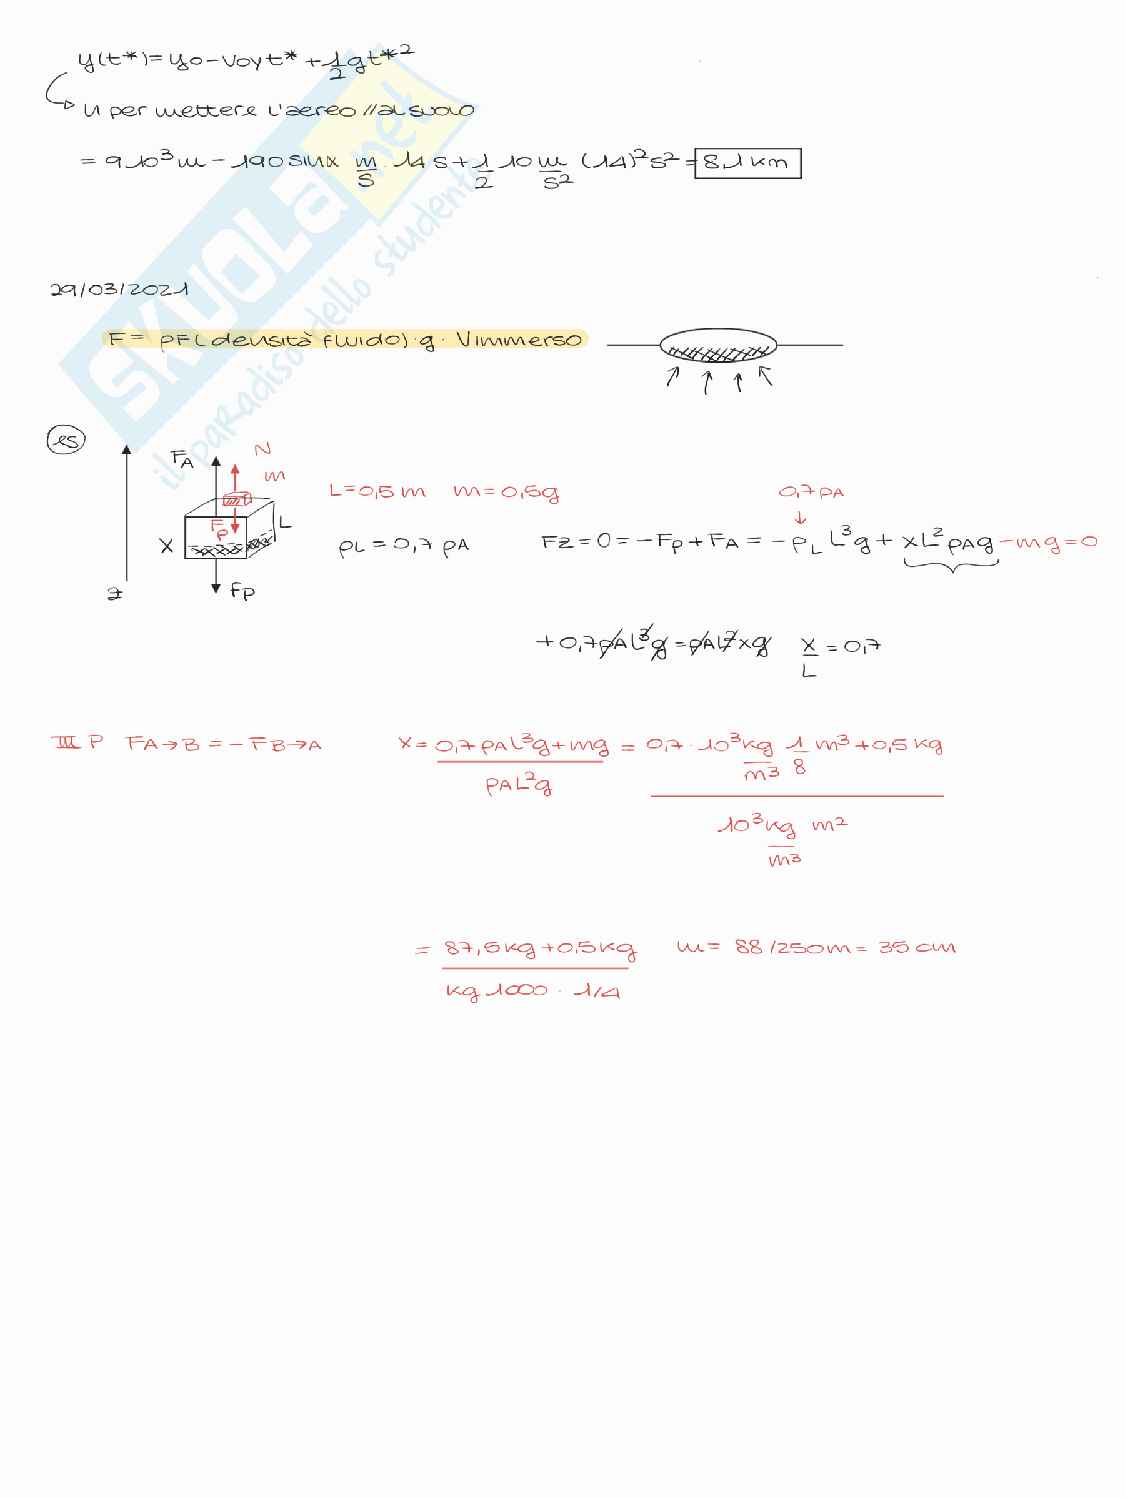 y(t*)=yo-voyt* +1/2 gt*²
↳ lì per mettere l'aereo // al suolo
= 9.10³ m - 190 sinx m/s . 14 s + 1/2 10 m/s² (14)² s² = 8,1 km
SKUOLA.net
il paradiso dello studente
29/03/2021
F = ρF(densità fluido)·g·Vimmerso
es
FA N
m
Fp
L
X
Fp
z
L=0,5m m=0,5g
0,7ρA
↓
ρL=0,7 ρA Fz=0=-Fp+FA=-ρL L³g + xL²ρAg -mg=0
+0,7ρAL³g=ρAL²xg x/L=0,7
III P FA→B = -FB→A X = 0,7ρAL³g+mg / ρAL²g = 0,7 · 10³kg/m³ 1/8 m³+0,5kg / 10³kg/m³ m²
= 87,5kg+0,5kg / kg 1000 · 1/4 m = 88/250m = 35 cm